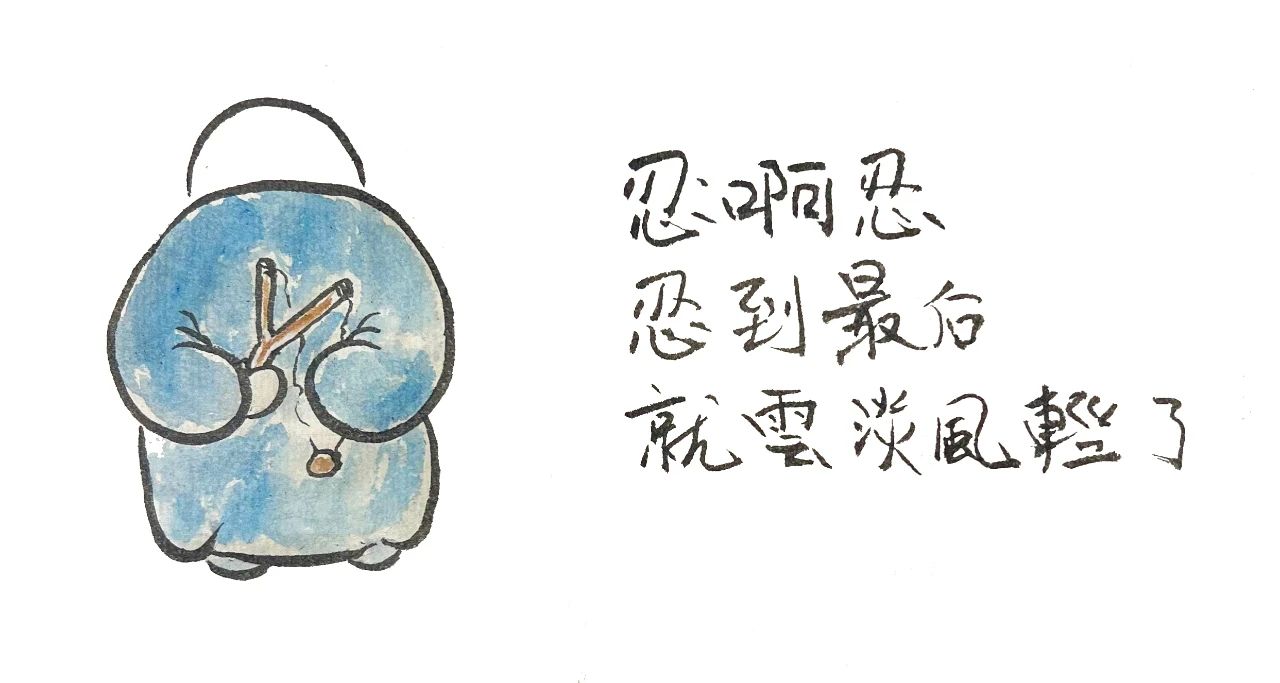 忍啊忍
忍到最后
就雲淡風輕了